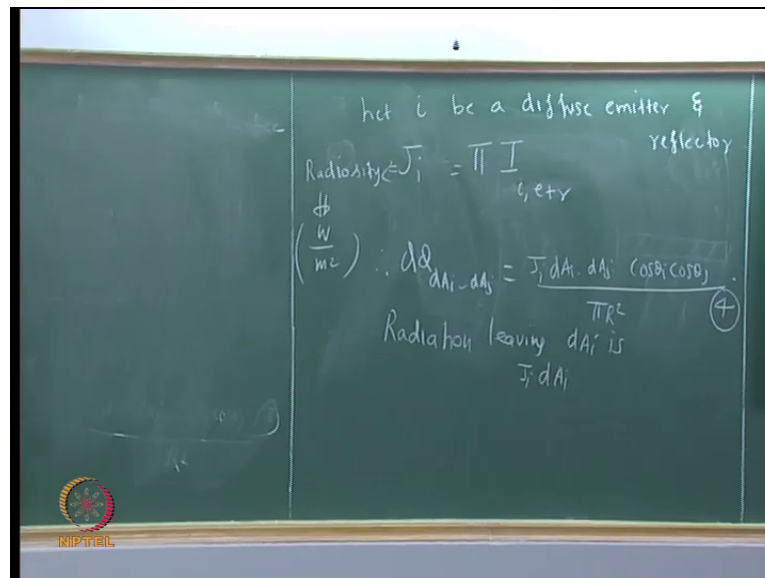 Let i be a diffuse emitter &
reflector
Radiosity ⇐ J_i = π I_{i,e+r}
⇓
(W/m²) ∴ dQ_{dA_i-dA_j} = J_i dA_i. dA_j cosθ_i cosθ_j / πR² . (4)
Radiation leaving dA_i is
J_i dA_i
NPTEL